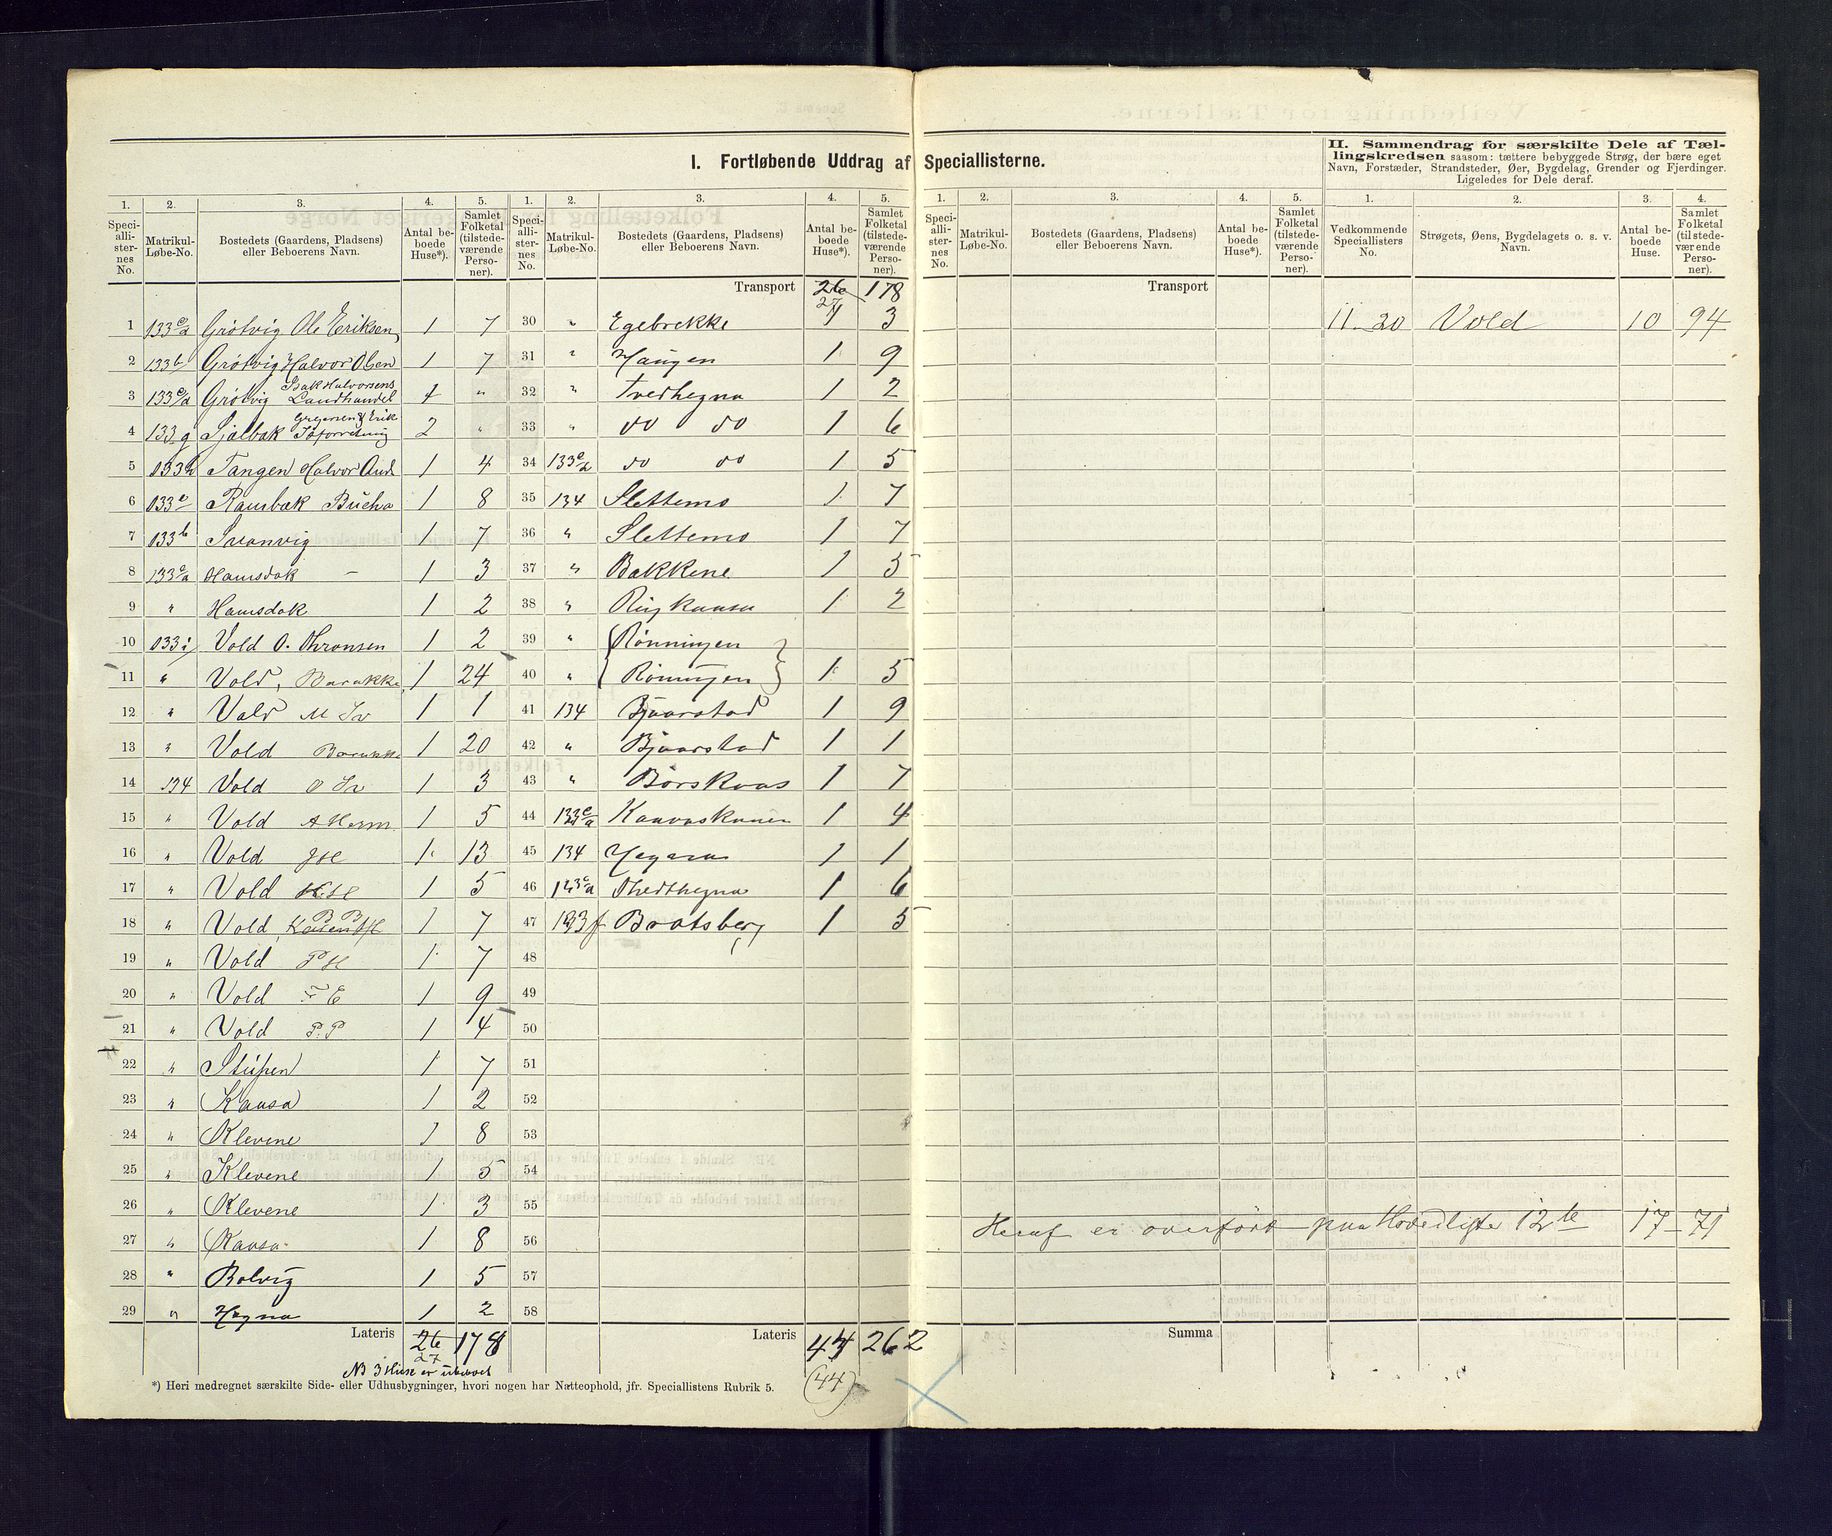 I. Fortløbende Uddrag af Speciallisterne.
II. Sammendrag for særskilte Dele af Tæl-
lingskredsen saasom: tættere bebyggede Strøg, der bære eget
Navn, Forstæder, Strandsteder, Øer, Bygdelag, Grender og Fjerdinger.
Ligeledes for Dele deraf.
1. 2. 3. 4. 5. 1. 2. 3. 4. 5. 1. 2. 3. 4. 5. 1. 2. 3. 4.
Speci-alli-ster-nes No. Matrikul-Løbe-No. Bostedets (Gaardens, Pladsens) eller Beboerens Navn. Antal be-boede Huse*). Samlet Folketal (tilstede-værende Perso-ner).
Speci-alli-ster-nes No. Matrikul-Løbe-No. Bostedets (Gaardens, Pladsens) eller Beboerens Navn. Antal be-boede Huse*). Samlet Folketal (tilstede-værende Perso-ner).
Speci-alli-ster-nes No. Matrikul-Løbe-No. Bostedets (Gaardens, Pladsens) eller Beboerens Navn. Antal be-boede Huse*). Samlet Folketal (tilstede-værende Perso-ner).
Vedkommende Speciallisters No. Strøgets, Øens, Bygdelagets o. s. v. Navn. Antal be-boede Huse. Samlet Folketal (tilstede-værende Perso-ner).
1 Grotvig Ole Eriksen 1 7
2 133b Grotvig Halvor Olsen 1 7
3 Grotvig Isak Halvorsens Landhandel 1 "
4 133g 2 "
5 Tangen Halvor 1 4
6 1 8
7 133b Svanvig 1 7
8 Hamsdok – 1 3
9 " Hamsdok 1 2
10 133i Vold O. Thronsen 1 2
11 " Vold, Barakke 1 24
12 " Vold 1 1
13 " Vold Barakke 1 20
14 134 Vold 1 3
15 " Vold 1 5
16 " Vold 1 13
17 " Vold 1 5
18 " Vold 1 7
19 " Vold P H 1 7
20 " Vold F E 1 9
21 " Vold P. P 1 4
22 " Stupen 1 7
23 " Kaasa 1 2
24 " Klevene 1 8
25 " Klevene 1 5
26 " Klevene 1 3
27 " Kaasa 1 8
28 " Bolvig 1 5
29 " Hegna 1 2
Lateris 26 178
27
NB 3 Huse er ubeboet
Transport 26 178
27
30 " Egebrekke 1 3
31 " Haugen 1 9
32 " Tvedhegna 1 2
33 " do do 1 6
34 do do 1 5
35 134 Slettemo 1 7
36 " Slettemo 1 7
37 " Bakkene 1 5
38 " Ringkaasa 1 2
39 " Rønningen
40 " Rønningen 1 5
41 134 Bjaarstad 1 9
42 " Bjaarstad 1 1
43 " Borskaas 1 7
44 1 4
45 134 1 1
46 Thedthegna 1 6
47 133f Bratsberg 1 5
48
49
50
51
52
53
54
55
56
57
58
Lateris 43 262
(44)
Transport
11–20 Vold 10 94
Heraf er overført paa Hovedliste 12te 17 – 71
Summa
*) Heri medregnet særskilte Side- eller Udhusbygninger, hvori nogen har Natteophold, jfr. Speciallistens Rubrik 5.